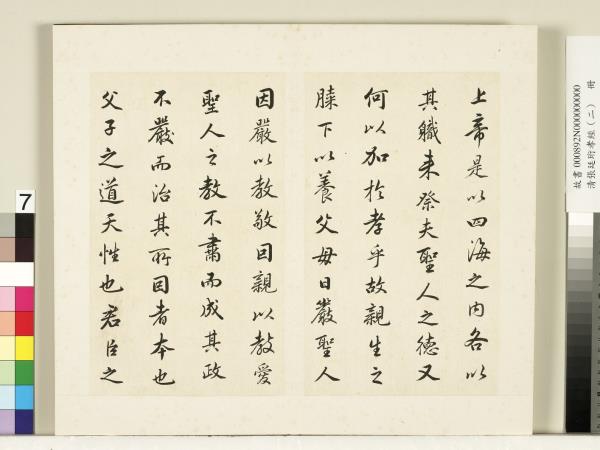 上帝是以四海之內各以
其職來祭夫聖人之德又
何以加於孝乎故親生之
膝下以養父母日嚴聖人
因嚴以教敬因親以教愛
聖人之教不肅而成其政
不嚴而治其所因者本也
父子之道天性也君臣之
故書 000892N000000000
清張廷珩孝經（二） 冊
7